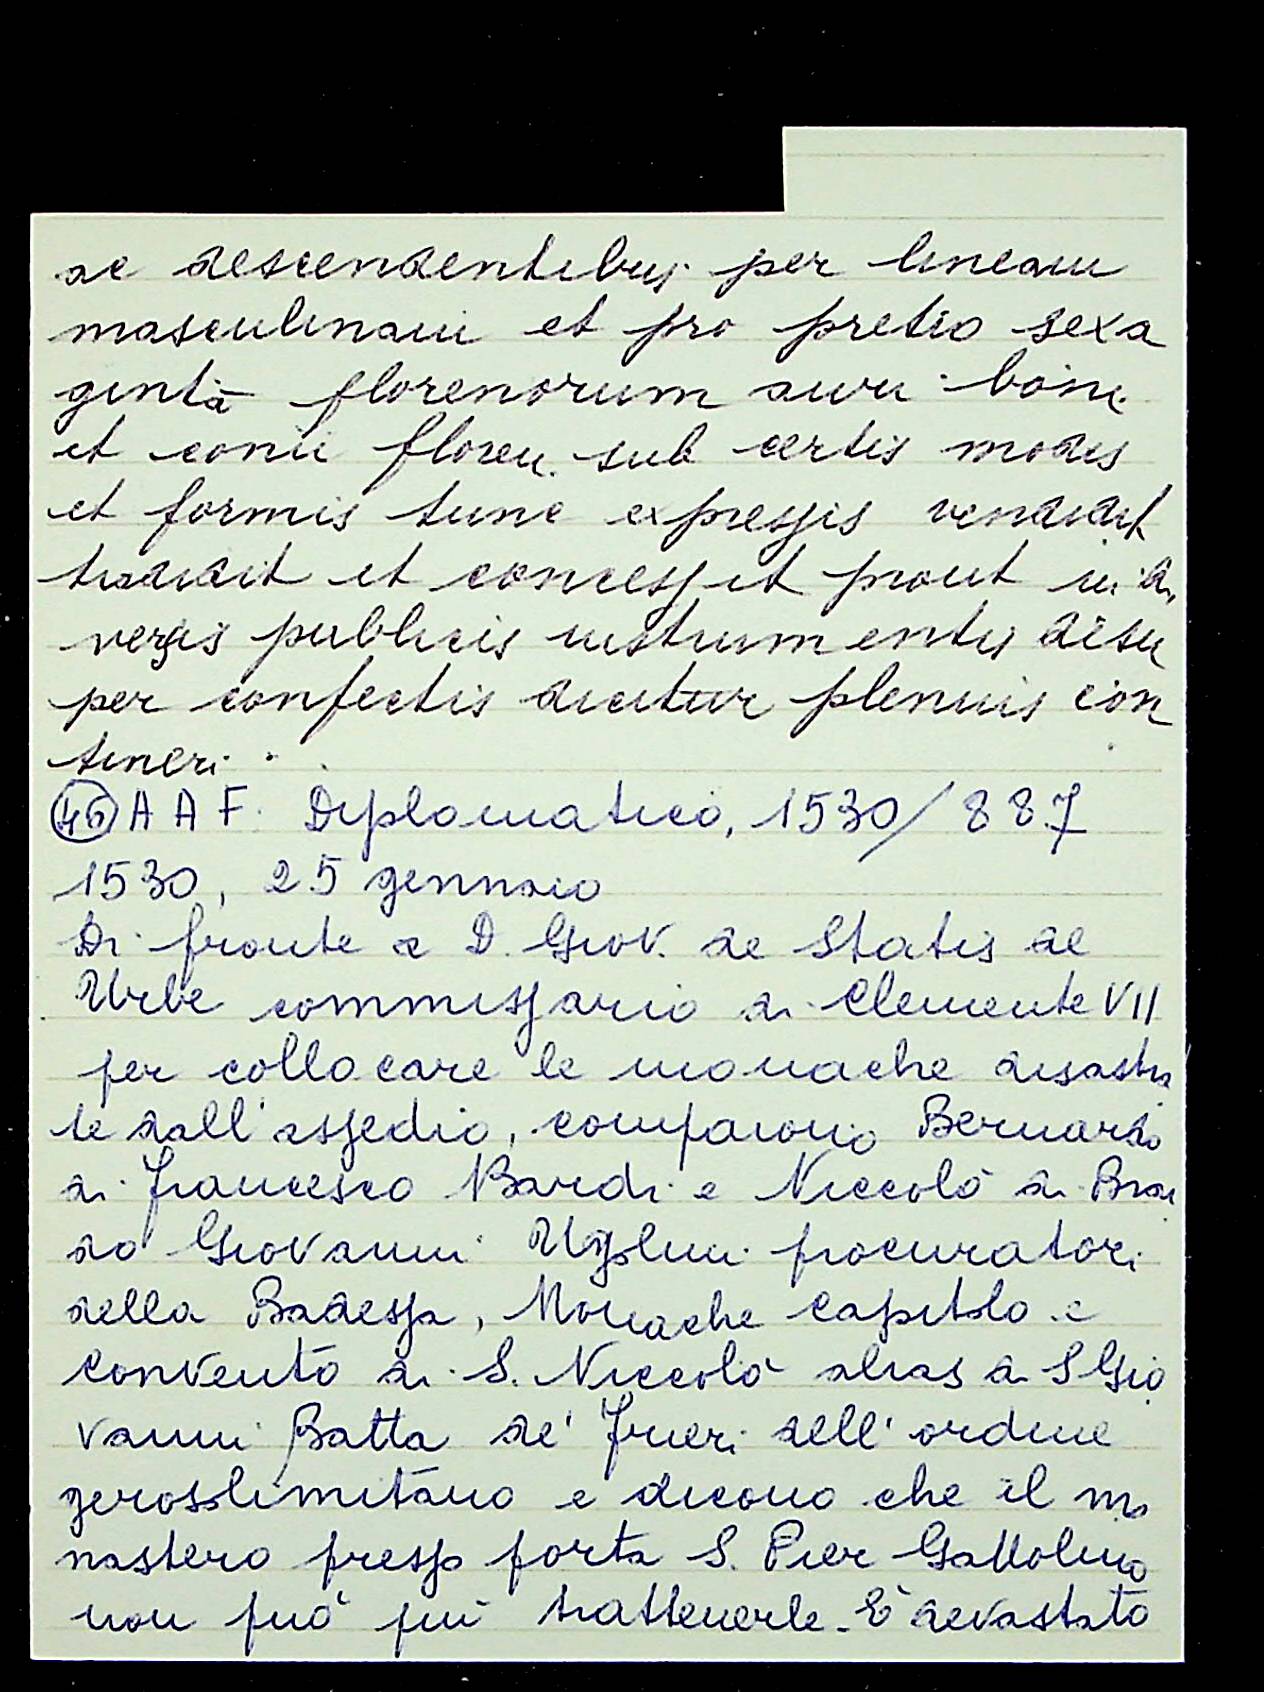 ac descendentibus per lineam
masculinam et pro pretio sexa
gintà florenorum auri boni
et conii floren. sub certis modis
et formis tunc expressis vendidit
tradidit et concessit prout in di,
versis publicis instrumentis desu
per confectis dicitur plenius con
tineri.
46 A A F. Diplomatico, 1530/887
1530, 25 gennaio
Di fronte a D. Giov. de Statis de
Urbe commissario di Clemente VII
per collocare le monache disastra
te dall'assedio, compaiono Bernardo
di Francesco Bardi e Niccolò di
do Giovanni procuratori
della Badessa, Monache capitolo e
convento di S. Niccolò alias di S Gio
vanni Batta de' Frieri dell'ordine
gerosolimitano e dicono che il mo
nastero presso porta S. Pier Gattolino
non può più trattenerle. È devastato